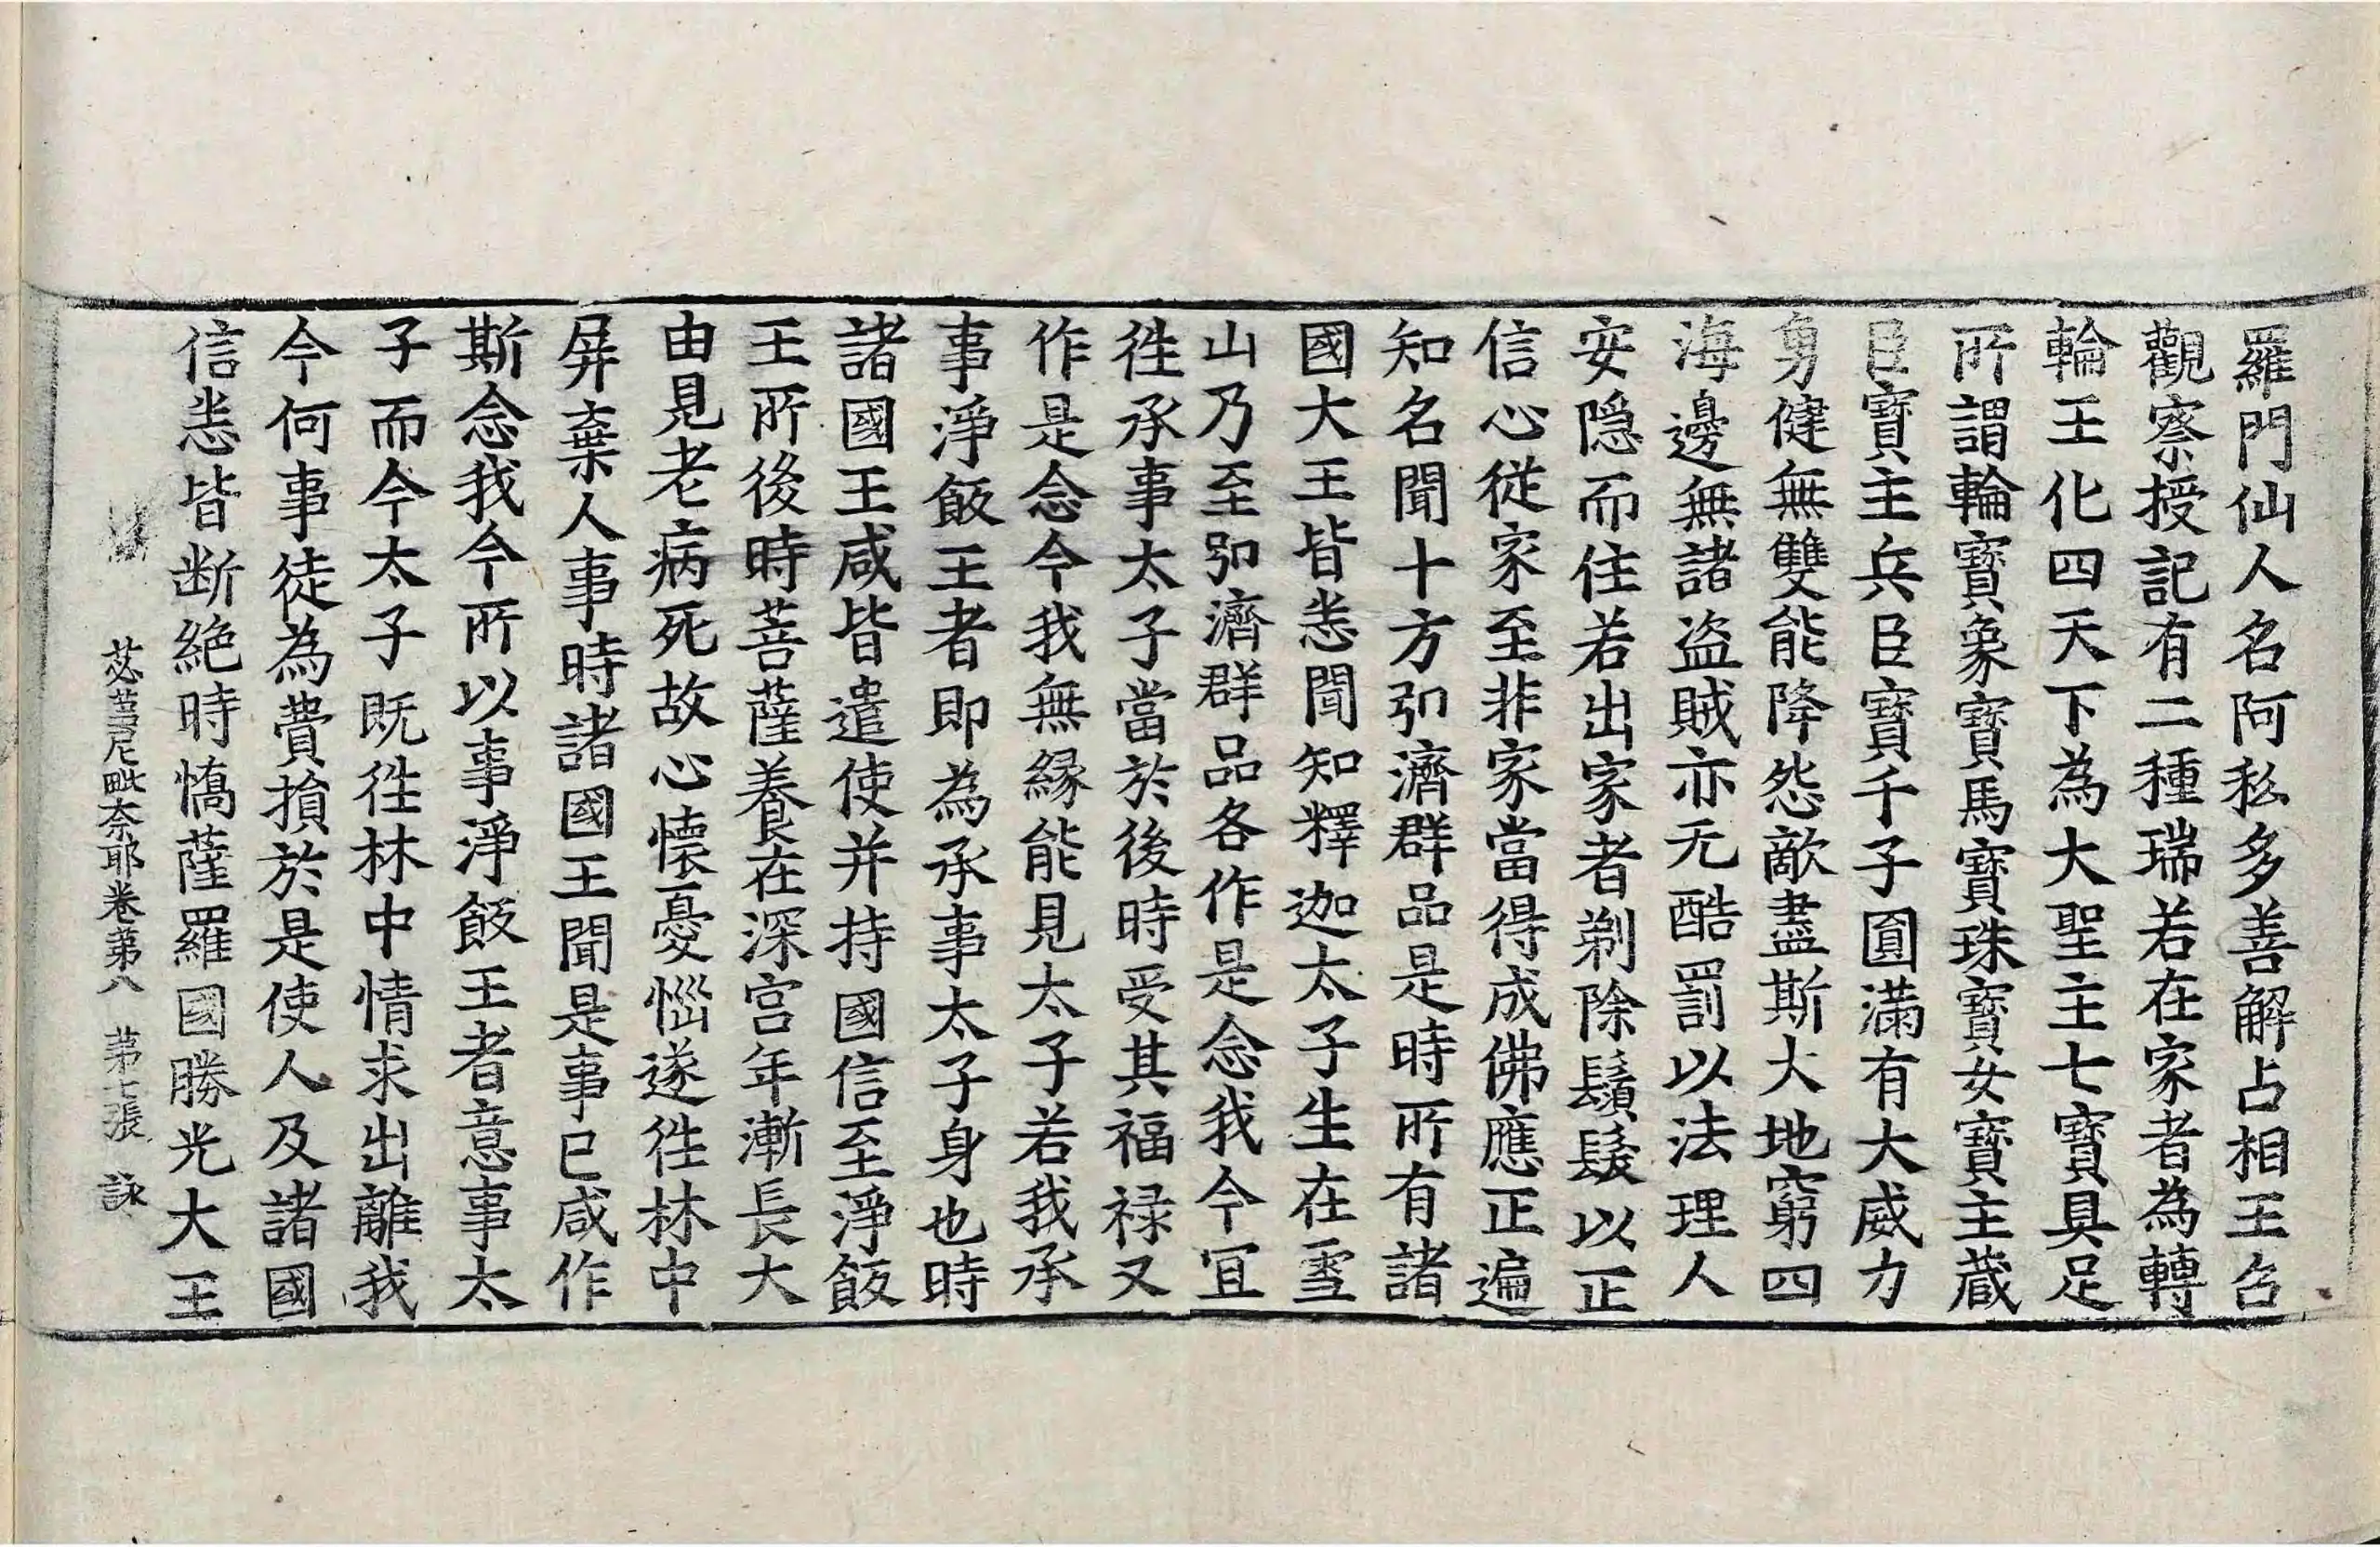 羅門仙人名阿私多善解占相王召
觀察授記有二種瑞若在家者為轉
輪王化四天下為大聖主七寶具足
所謂輪寶象寶馬寶珠寶女寶主藏
臣寶主兵臣寶千子圓滿有大威力
勇健無雙能降怨敵盡斯大地窮四
海邊無諸盜賊亦无酷罰以法理人
安隱而住若出家者剃除鬚髮以正
信心從家至非家當得成佛應正遍
知名聞十方弘濟群品是時所有諸
國大王皆悉聞知釋迦太子生在雪
山乃至弘濟群品各作是念我今冝
徃承事太子當於後時受其福禄又
作是念今我無縁能見太子若我承
事淨飯王者即為承事太子身也時
諸國王咸皆遣使并持國信至淨飯
王所後時菩薩養在深宫年漸長大
由見老病死故心懷憂惱遂徃林中
屏棄人事時諸國王聞是事已咸作
斯念我今所以事淨飯王者意事太
子而今太子既徃林中情求出離我
今何事徒為費損於是使人及諸國
信悉皆断絶時憍薩羅國勝光大王
苾蒭尼毗奈耶卷苐八 苐七張 詠